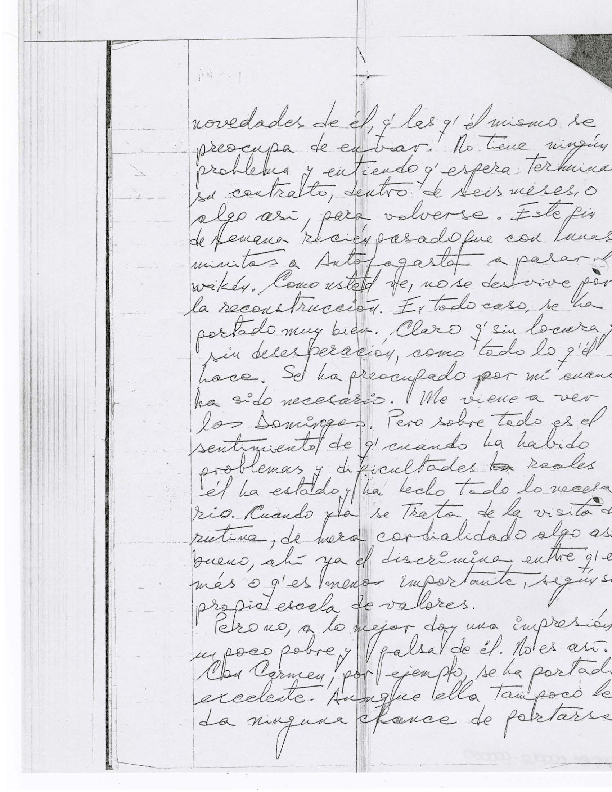 novedades de él, q' las q' él mismo se
preocupa de enviar. No tiene ningún
problema y entiendo q' espera termina
su contrato, dentro de seis meses, o
algo así, para volverse. Este fin
de semana recién pasado fue con unas
minitas a Antofagasta a pasar el
wekén. Como usted ve, no se desvive por
la reconstrucción. En todo caso, se ha
portado muy bien. Claro q' sin locura,
sin desesperación, como todo lo q' él
hace. Se ha preocupado por mí cuand
ha sido necesario. Me viene a ver
los Domingos. Pero sobre todo es el
sentimiento de q' cuando ha habido
problemas y dificultades reales
él ha estado y ha hecho todo lo necesa
rio. Cuando ya se trata de la visita d
rutina, de mera cordialidad o algo as
bueno, ahí ya él discrimina entre q' e
más o q' es menos importante, según s
propia escala de valores.
Pero no, a lo mejor doy una impresión
un poco pobre y falsa de él. No es así.
Con Carmen, por ejemplo, se ha portad
excelente. Aunque ella tampoco le
da ninguna chance de portarse